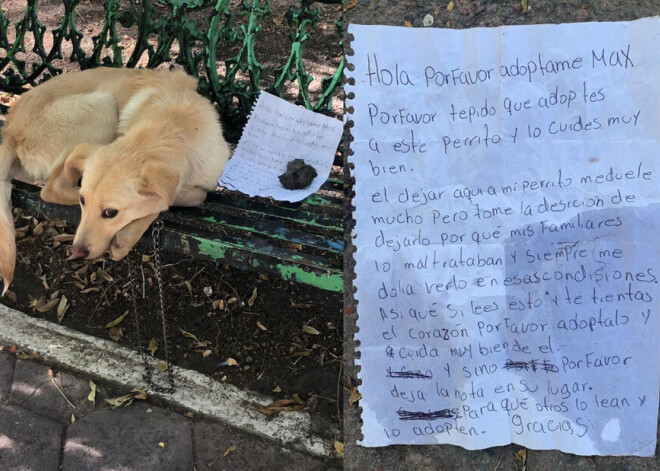 Hola PorFavor adoptame MAX
PorFavor tepido que adoptes
a este perrito y lo cuides muy
bien.
el dejar aqui a mi perrito meduele
mucho Pero tome la desición de
dejarlo por qué mis Familiares
lo maltrataban y siempre me
dolia verlo en esas condisiones.
Asi que si lees esto y te tientas
el corazón PorFavor adoptalo y
cuida muy bien de el.
y sino PorFavor
deja la nota en su lugar.
Para que otros lo lean y
lo adopten. gracias